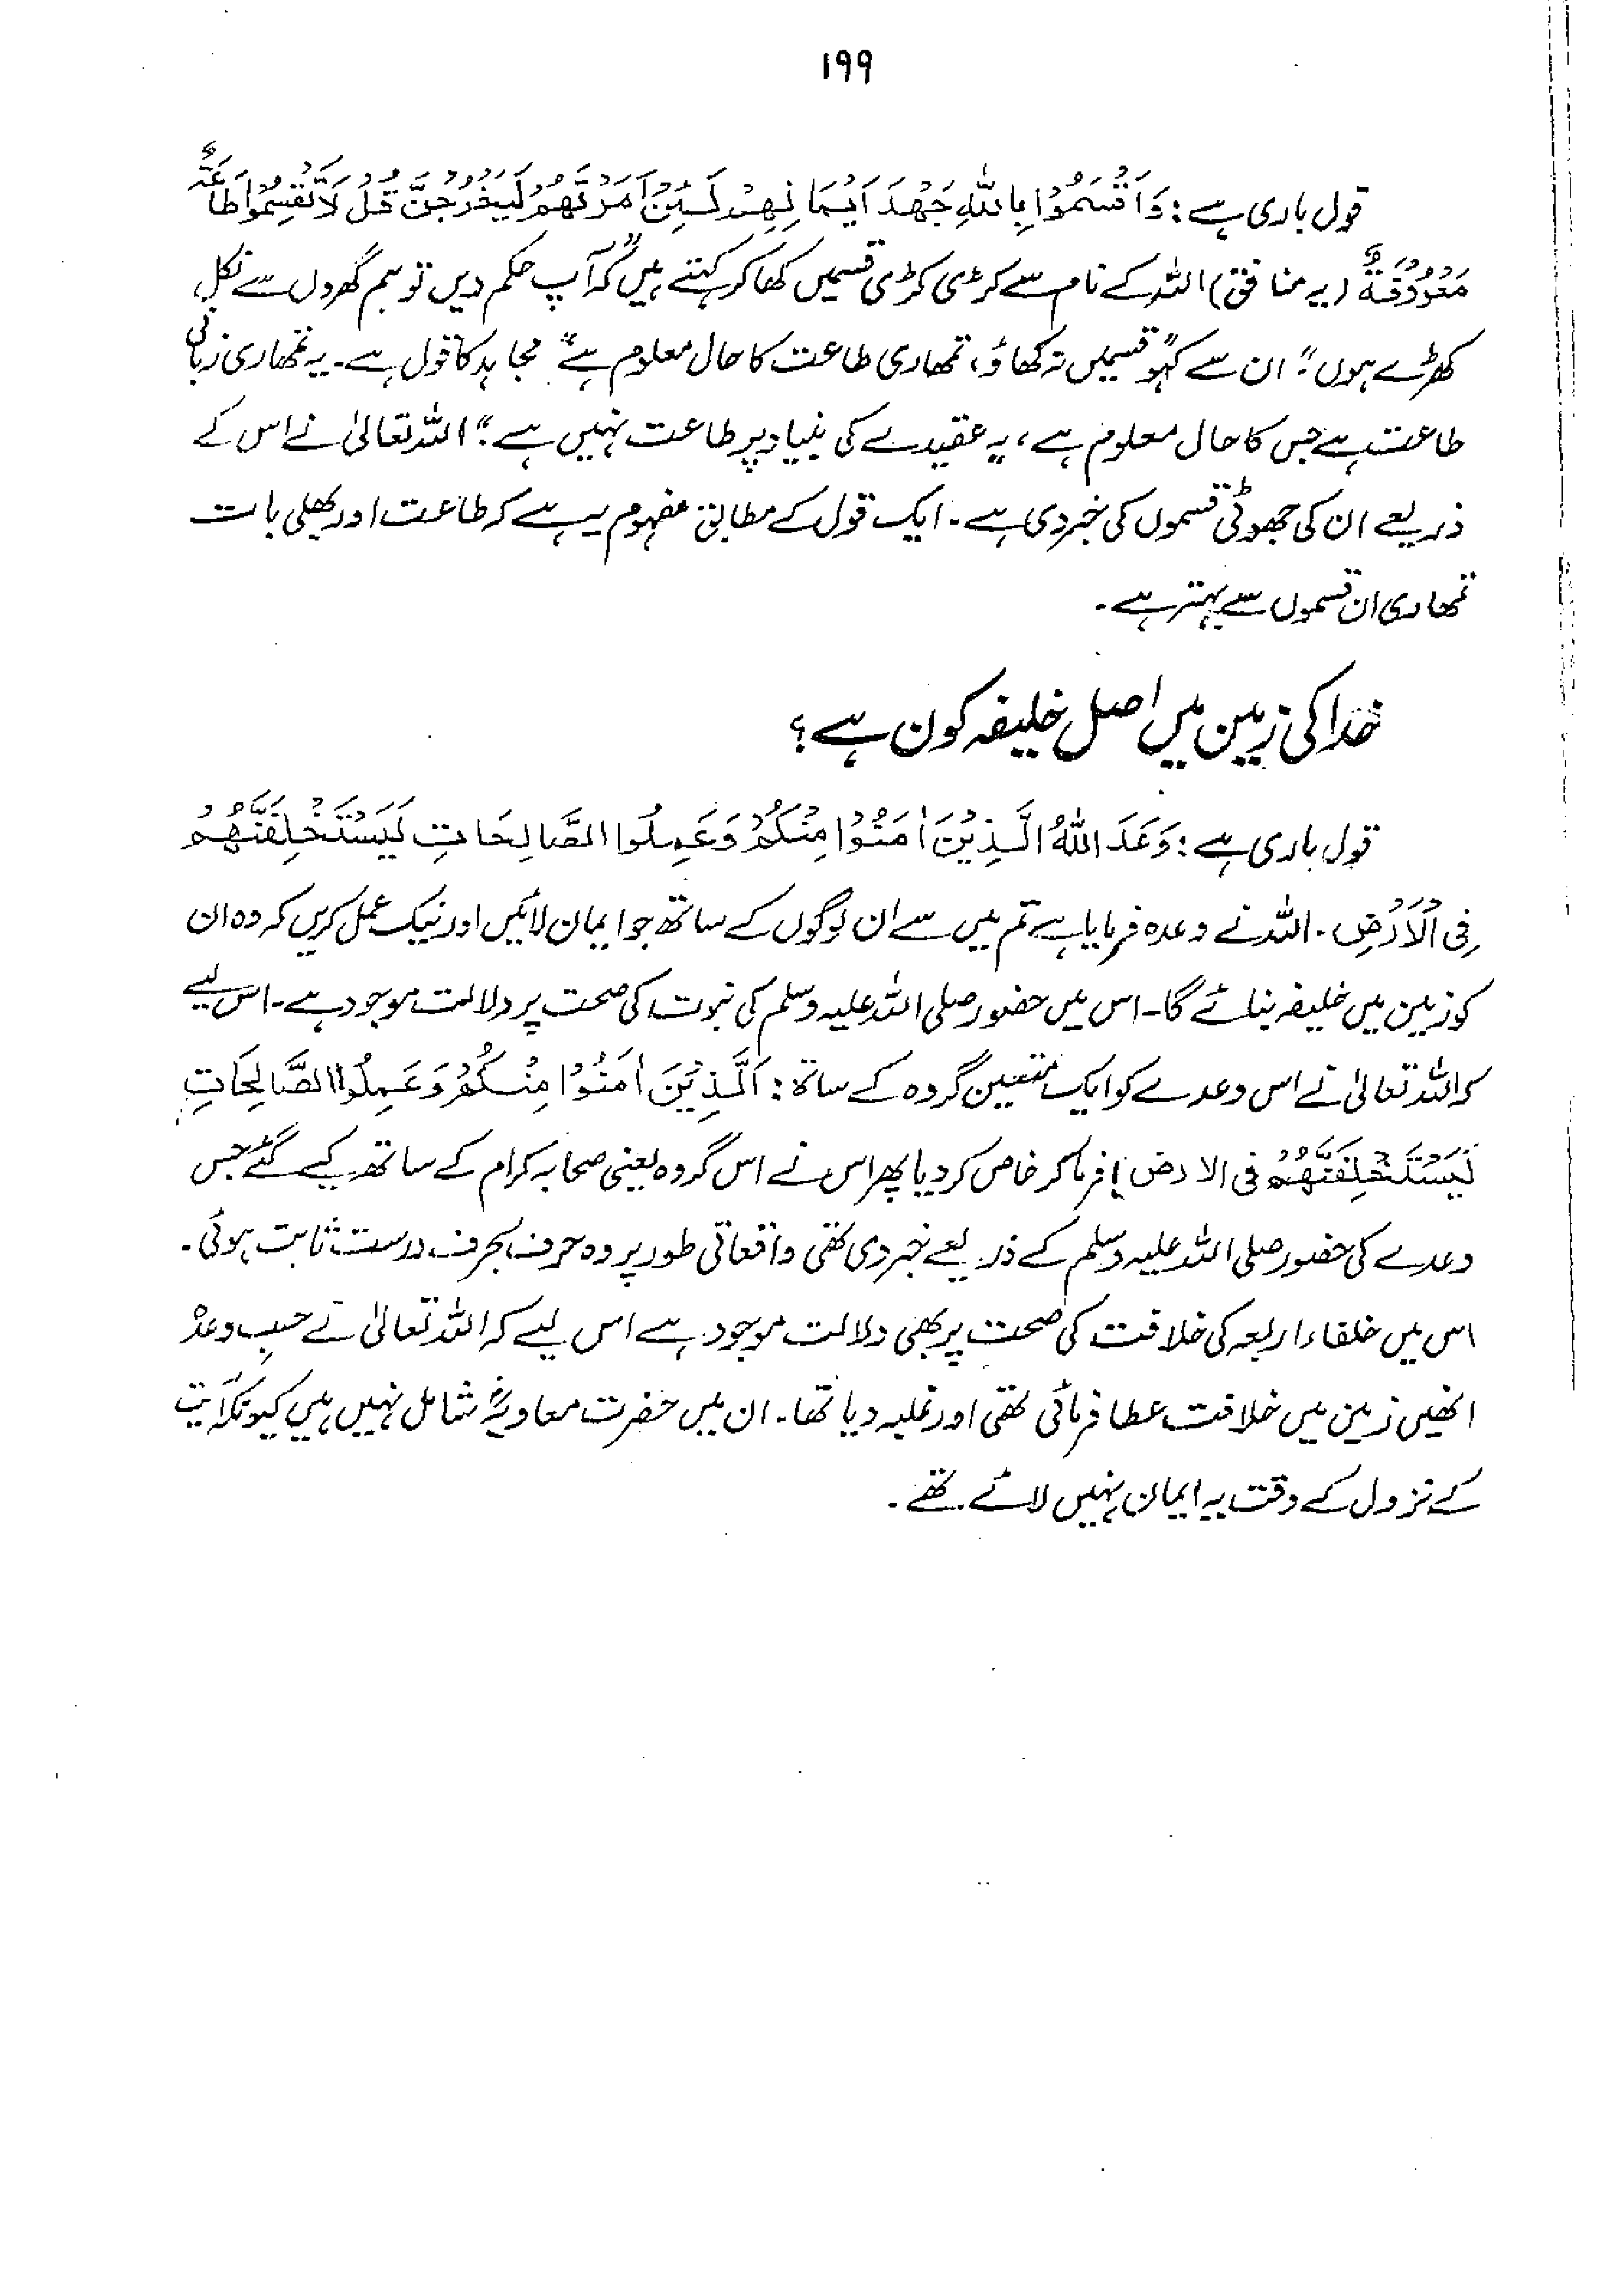 ۱۹۹
قول باری ہے: وَاَقْسَمُوْا بِاللّٰهِ جَهْدَ اَيْمَانِهِمْ لَئِنْ اَمَرْتَهُمْ لَيَخْرُجُنَّ قُلْ لَا تُقْسِمُوْا طَاعَةٌ
مَعْرُوْفَةٌ (یہ منافق) اللہ کے نام سے کڑی کڑی قسمیں کھا کر کہتے ہیں کہ ”آپ حکم دیں تو ہم گھروں سے نکل
کھڑے ہوں“ ان سے کہو ”قسمیں نہ کھاؤ، تمھاری طاعت کا حال معلوم ہے“ مجاہد کا قول ہے۔ یہ تمھاری زبانی
طاعت ہے جس کا حال معلوم ہے، یہ عقیدے کی بنیاد پر طاعت نہیں ہے“؛ اللہ تعالیٰ نے اس کے
ذریعے ان کی جھوٹی قسموں کی خبر دی ہے۔ ایک قول کے مطابق مفہوم یہ ہے کہ طاعت اور بھلی بات
تمھاری ان قسموں سے بہتر ہے۔
خدا کی زمین میں اصل خلیفہ کون ہے؟
قول باری ہے: وَعَدَ اللّٰهُ الَّذِيْنَ اٰمَنُوْا مِنْكُمْ وَعَمِلُوا الصَّالِحَاتِ لَيَسْتَخْلِفَنَّهُمْ
فِی الْاَرْضِ۔ اللہ نے وعدہ فرمایا ہے تم میں سے ان لوگوں کے ساتھ جو ایمان لائیں اور نیک عمل کریں کہ وہ ان
کو زمین میں خلیفہ بنائے گا۔ اس میں حضور صلی اللہ علیہ وسلم کی نبوت کی صحت پر دلالت موجود ہے۔ اس لیے
کہ اللہ تعالیٰ نے اس وعدے کو ایک متعین گروہ کے ساتھ: اَلَّذِيْنَ اٰمَنُوْا مِنْكُمْ وَعَمِلُوا الصَّالِحَاتِ
لَيَسْتَخْلِفَنَّهُمْ فی الارض) فرما کر خاص کر دیا پھر اس نے اس گروہ یعنی صحابہ کرام کے ساتھ کیے گئے جس
وعدے کی حضور صلی اللہ علیہ وسلم کے ذریعے خبر دی تھی واقعاتی طور پر وہ حرف بحرف درست ثابت ہوئی۔
اس میں خلفاء اربعہ کی خلافت کی صحت پر بھی دلالت موجود ہے اس لیے کہ اللہ تعالیٰ نے حسب وعدہ
انھیں زمین میں خلافت عطا فرمائی تھی اور غلبہ دیا تھا۔ ان میں حضرت معاویہؓ شامل نہیں ہیں کیونکہ آیت
کے نزول کے وقت یہ ایمان نہیں لائے تھے۔